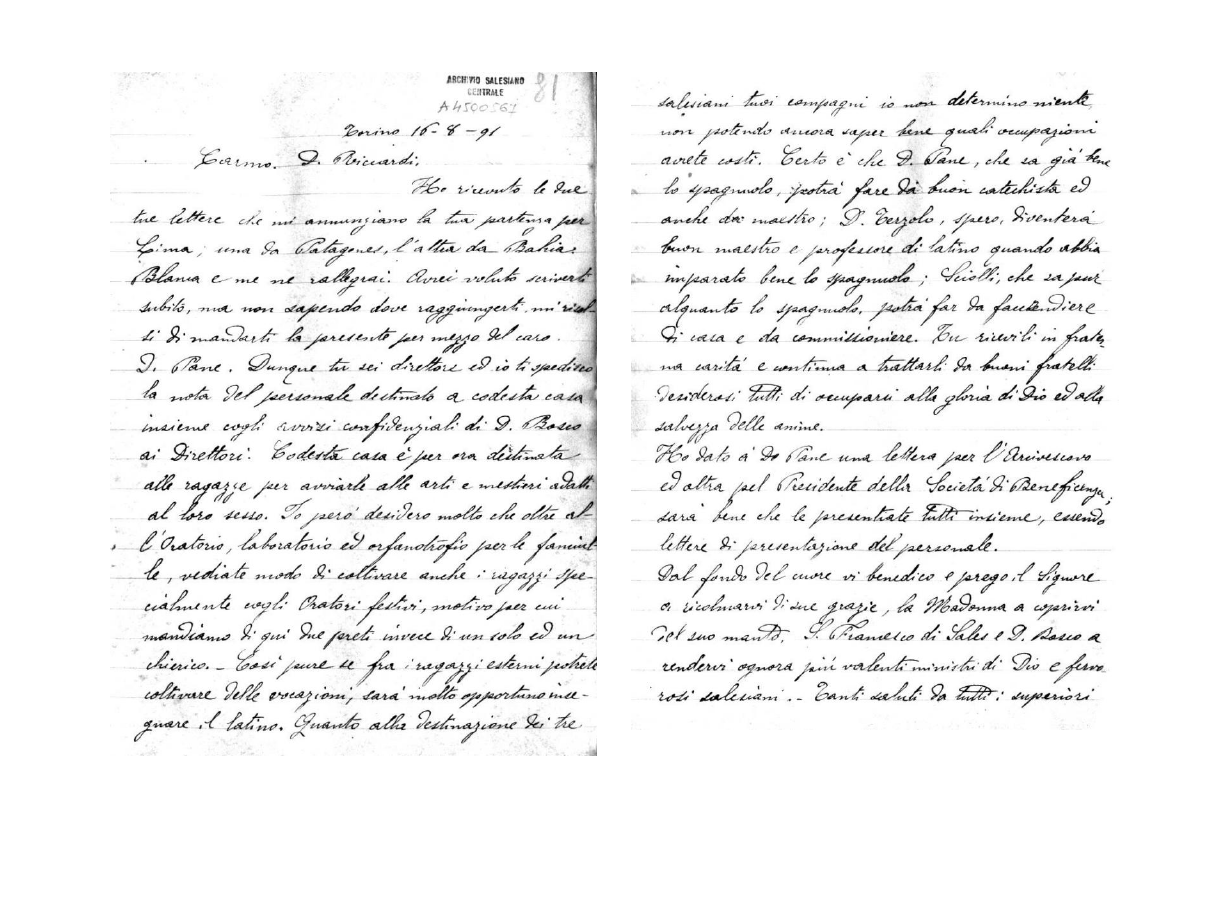 ARCHIVIO SALESIANO
CENTRALE
81
A4500561
Torino 16-8-91
Carmo. D. Ricciardi,
Ho ricevuto le due
tue lettere che mi annunziano la tua partenza per
Lima; una da Patagones, l'altra da Bahia=
Blanca e me ne rallegrai. Avrei voluto scriverti
subito, ma non sapendo dove raggiungerti, mi risol-
si di mandarti la presente per mezzo del caro
D. Pane. Dunque tu sei direttore ed io ti spedisco
la nota del personale destinato a codesta casa
insieme cogli avvisi confidenziali di D. Bosco
ai Direttori. Codesta casa è per ora destinata
alle ragazze per avviarle alle arti e mestieri adatti
al loro sesso. Io però desidero molto che oltre al-
l'Oratorio, laboratorio ed orfanotrofio per le fanciul
le, vediate modo di coltivare anche i ragazzi spe-
cialmente cogli Oratori festivi, motivo per cui
mandiamo di qui due preti invece di un solo ed un
chierico. - Così pure se fra i ragazzi esterni potrete
coltivare delle vocazioni, sarà molto opportuno inse-
gnare il latino. Quanto alla destinazione dei tre
salesiani tuoi compagni io non determino niente
non potendo ancora saper bene quali occupazioni
avrete costì. Certo è che D. Pane, che sa già bene
lo spagnuolo, potrà fare da buon catechista ed
anche da maestro; D. Terzolo, spero, diventerà
buon maestro e professore di latino quando abbia
imparato bene lo spagnuolo; Sciolli, che sa pur
alquanto lo spagnuolo, potrà far da faccendiere
di casa e da commissioniere. Tu ricevili in frater-
na carità e continua a trattarli da buoni fratelli
desiderosi tutti di occuparsi alla gloria di Dio ed alla
salvezza delle anime.
Ho dato a D. Pane una lettera per l'Arcivescovo
ed altra pel Presidente della Società di Beneficenza;
sarà bene che le presentiate tutti insieme, essendo
lettere di presentazione del personale.
Dal fondo del cuore vi benedico e prego il Signore
a ricolmarvi di sue grazie, la Madonna a coprirvi
del suo manto, S. Francesco di Sales e D. Bosco a
rendervi ognora più valenti ministri di Dio e fervo
rosi salesiani. - Tanti saluti da tutti i superiori